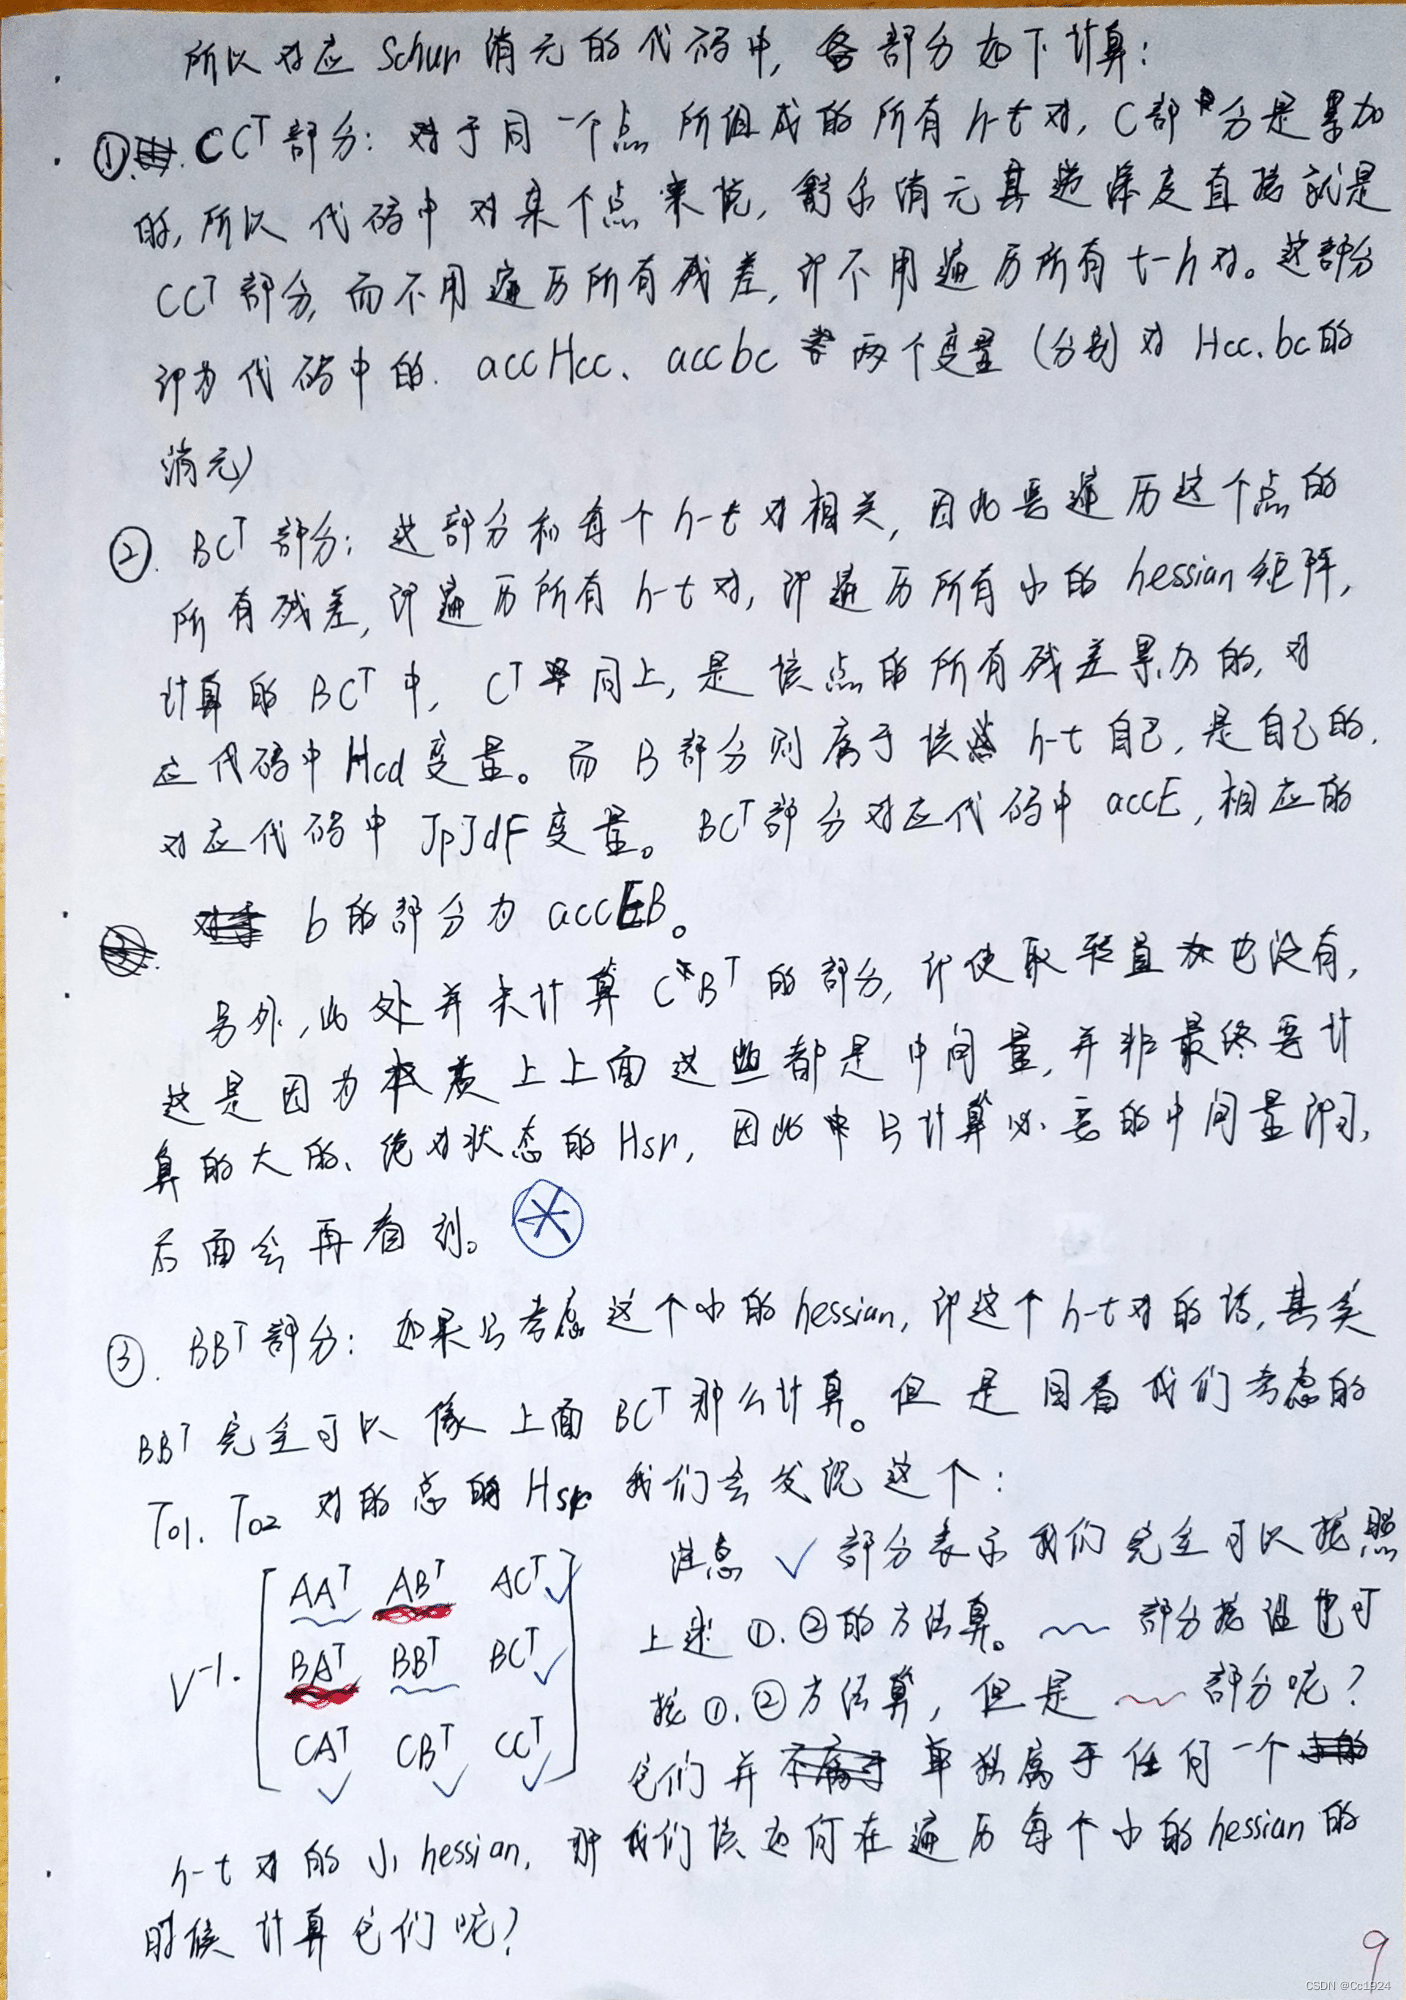 所以对应 Schur 消元的代码中, 各部分如下计算:
①. CCᵀ部分: 对于同一个点所组成的所有 h-t 对, C部分是累加
的, 所以代码中对某个点来说, 舒尔消元其逆深度直接就是
CCᵀ部分, 而不用遍历所有残差, 即不用遍历所有 t-h 对。这部分
即为代码中的 accHcc、accbc 两个变量 (分别对 Hcc、bc的
消元)
②. BCᵀ部分: 这部分和每个 h-t 对相关, 因此要遍历这个点的
所有残差, 即遍历所有 h-t 对, 即遍历所有小的 hessian 矩阵,
计算的 BCᵀ 中, Cᵀ 同上, 是该点的所有残差累加的, 对
应代码中 Hcd 变量。而 B 部分则属于该 h-t 自己, 是自己的,
对应代码中 JpJdF 变量。BCᵀ部分对应代码中 accE, 相应的
b 的部分为 accEB。
另外, 此处并未计算 CBᵀ 的部分, 即使取转置也没有,
这是因为本质上上面这些都是中间量, 并非最终要计
算的大的、绝对状态的 Hsr, 因此只计算必要的中间量即可,
后面会再看到。 *
③. BBᵀ部分: 如果只考虑这个小的 hessian, 即这个 h-t 对的话, 其实
BBᵀ 完全可以像上面 BCᵀ 那么计算。但是回看我们考虑的
T01、T02 对的总的 Hsr 我们会发现这个:
注意 ✓ 部分表示我们完全可以按照
上述 ①、②的方法算。 ~~ 部分按理也可
按 ①、②方法算, 但是 ~~ 部分呢?
它们并单独属于任何一个
V⁻¹·
AAᵀ ABᵀ ACᵀ ✓
BAᵀ BBᵀ BCᵀ ✓
CAᵀ ✓ CBᵀ ✓ CCᵀ ✓
h-t 对的小 hessian, 那我们该如何在遍历每个小的 hessian 的
时候计算它们呢?
9
CSDN @Cc1924